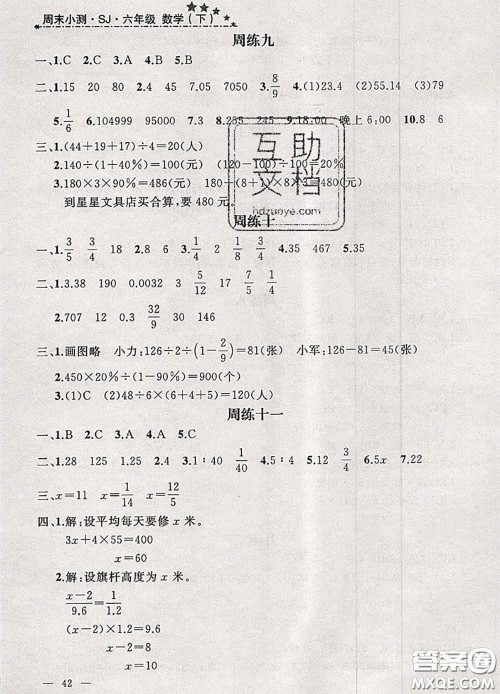 周末小测·SJ·六年级 数学(下)
周练九
一、1.C 2.C 3.A 4.B 5.B
二、1.2.15 2.4 45 7.05 7050 3.8/9 4.(1)23.4 (2)55.44 (3)79
5.1/6 6.104999 95000 7.3 8.255 245 9.18:00 晚上6:00 10.8 6
三、1.(44+19+17)÷4=20(人)
2.140÷(1+40%)=100(元) (120-100)÷100=20%
3.180×3×90%=486(元) 180÷(8+1)×8×3=480(元)
到星星文具店买合算,要480元。
周练十
一、1.3/5 3/4 18 0.8 3/2 3.1/4 2 4/3 4.35 5.35 467
二、1.38 190 0.0032 3 5/12 17 7/5 4 1/4
2.707 12 0.3 32/9 30 146
三、1.画图略 小力:126÷2÷(1-2/9)=81(张) 小军:126-81=45(张)
2.450×20%÷(1-90%)=900(个)
3.(1)C (2)60÷50%=120(人)
周练十一
一、1.B 2.C 3.A 4.A 5.C
二、1.28 125 20 2.24 3.1:40 1/40 4.5 5.12 3/4 6.5x 7.22
三、x=11 x=1/14 x=3/12
四、1.解:设平均每天要修x米。
3x+4×55=400
x=60
2.解:设旗杆高度为x米。
x-2/9.6=1/1.2
(x-2)×1.2=9.6
x-2=8
x=10
— 42 —
互助
文档
hdzuoye.com
答案圈
MXQE.COM